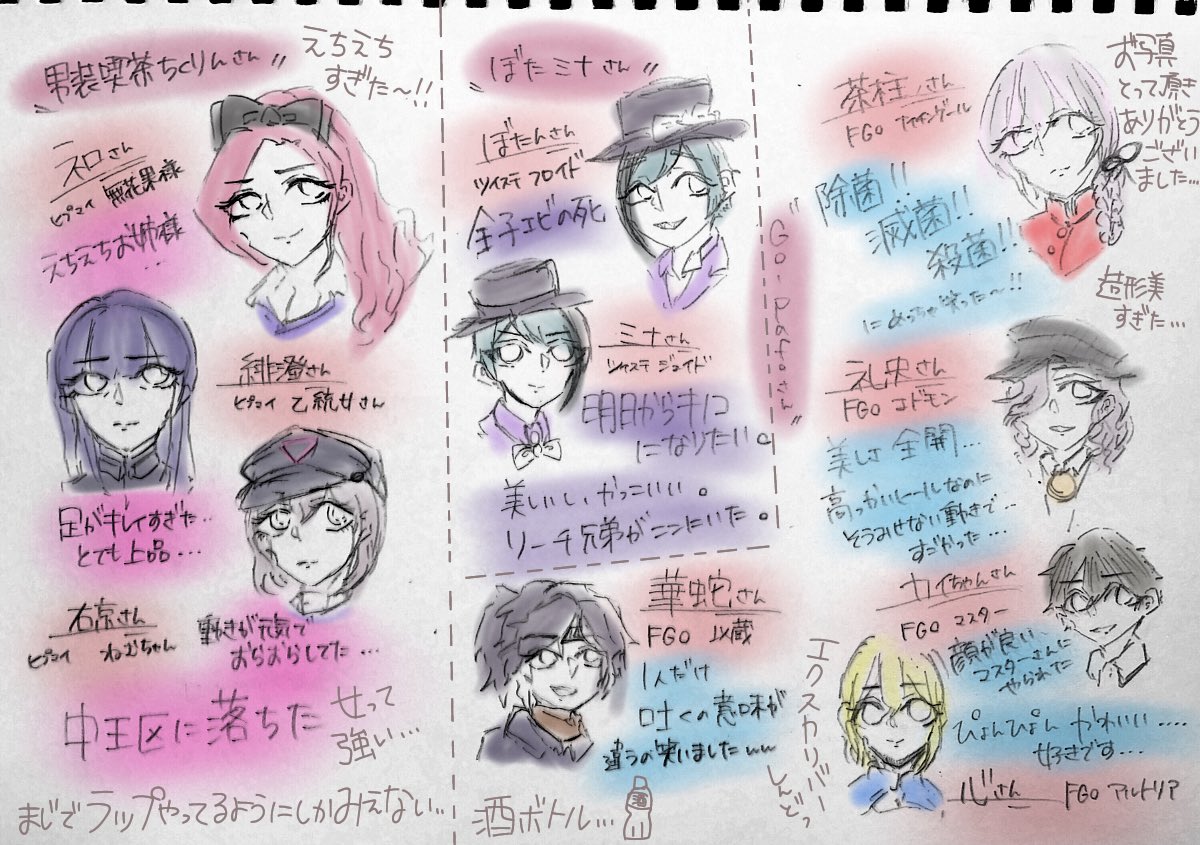 男装喫茶ちくりんさん
えちえち
すぎた〜!!
ネロさん
ヒプマイ 無花果様
えちえちお姉様
...
緋澄さん
ヒプマイ 乙統女さん
足がキレイすぎた...
とても上品...
右京さん
ヒプマイ ねむちゃん
動きが元気で
おらおらしてた...
中王区に落ちた
女って
強い...
まじでラップやってるようにしかみえない...
ぼたミナさん
ぼたんさん
ツイステ フロイド
金子エビの死
ミナさん
ツイステ ジェイド
明日からキノコ
になりたい。
美しい、かっこいい。
リーチ兄弟がここにいた。
華蛇さん
FGO 以蔵
1人だけ
吐くの意味が
違うの笑いましたww
酒ボトル...
酒
"Go・Pafeさん"
茶柱さん
FGO ナイチンゲール
お写真
とって頂き
ありがとう
ございました...
除菌!!
滅菌!!
殺菌!!
にめっちゃ笑った〜!!
造形美
すぎた...
礼央さん
FGO エドモン
美しさ全開...
高っかいヒールなのに
そうみせない動きで...
すごかった...
カイちゃんさん
FGO マスター
顔が良い、
マスターさんに
やられた
ぴょんぴょん かわいい....
好きです...
心さん FGO アルトリア
エクスカリバー
しんどっ